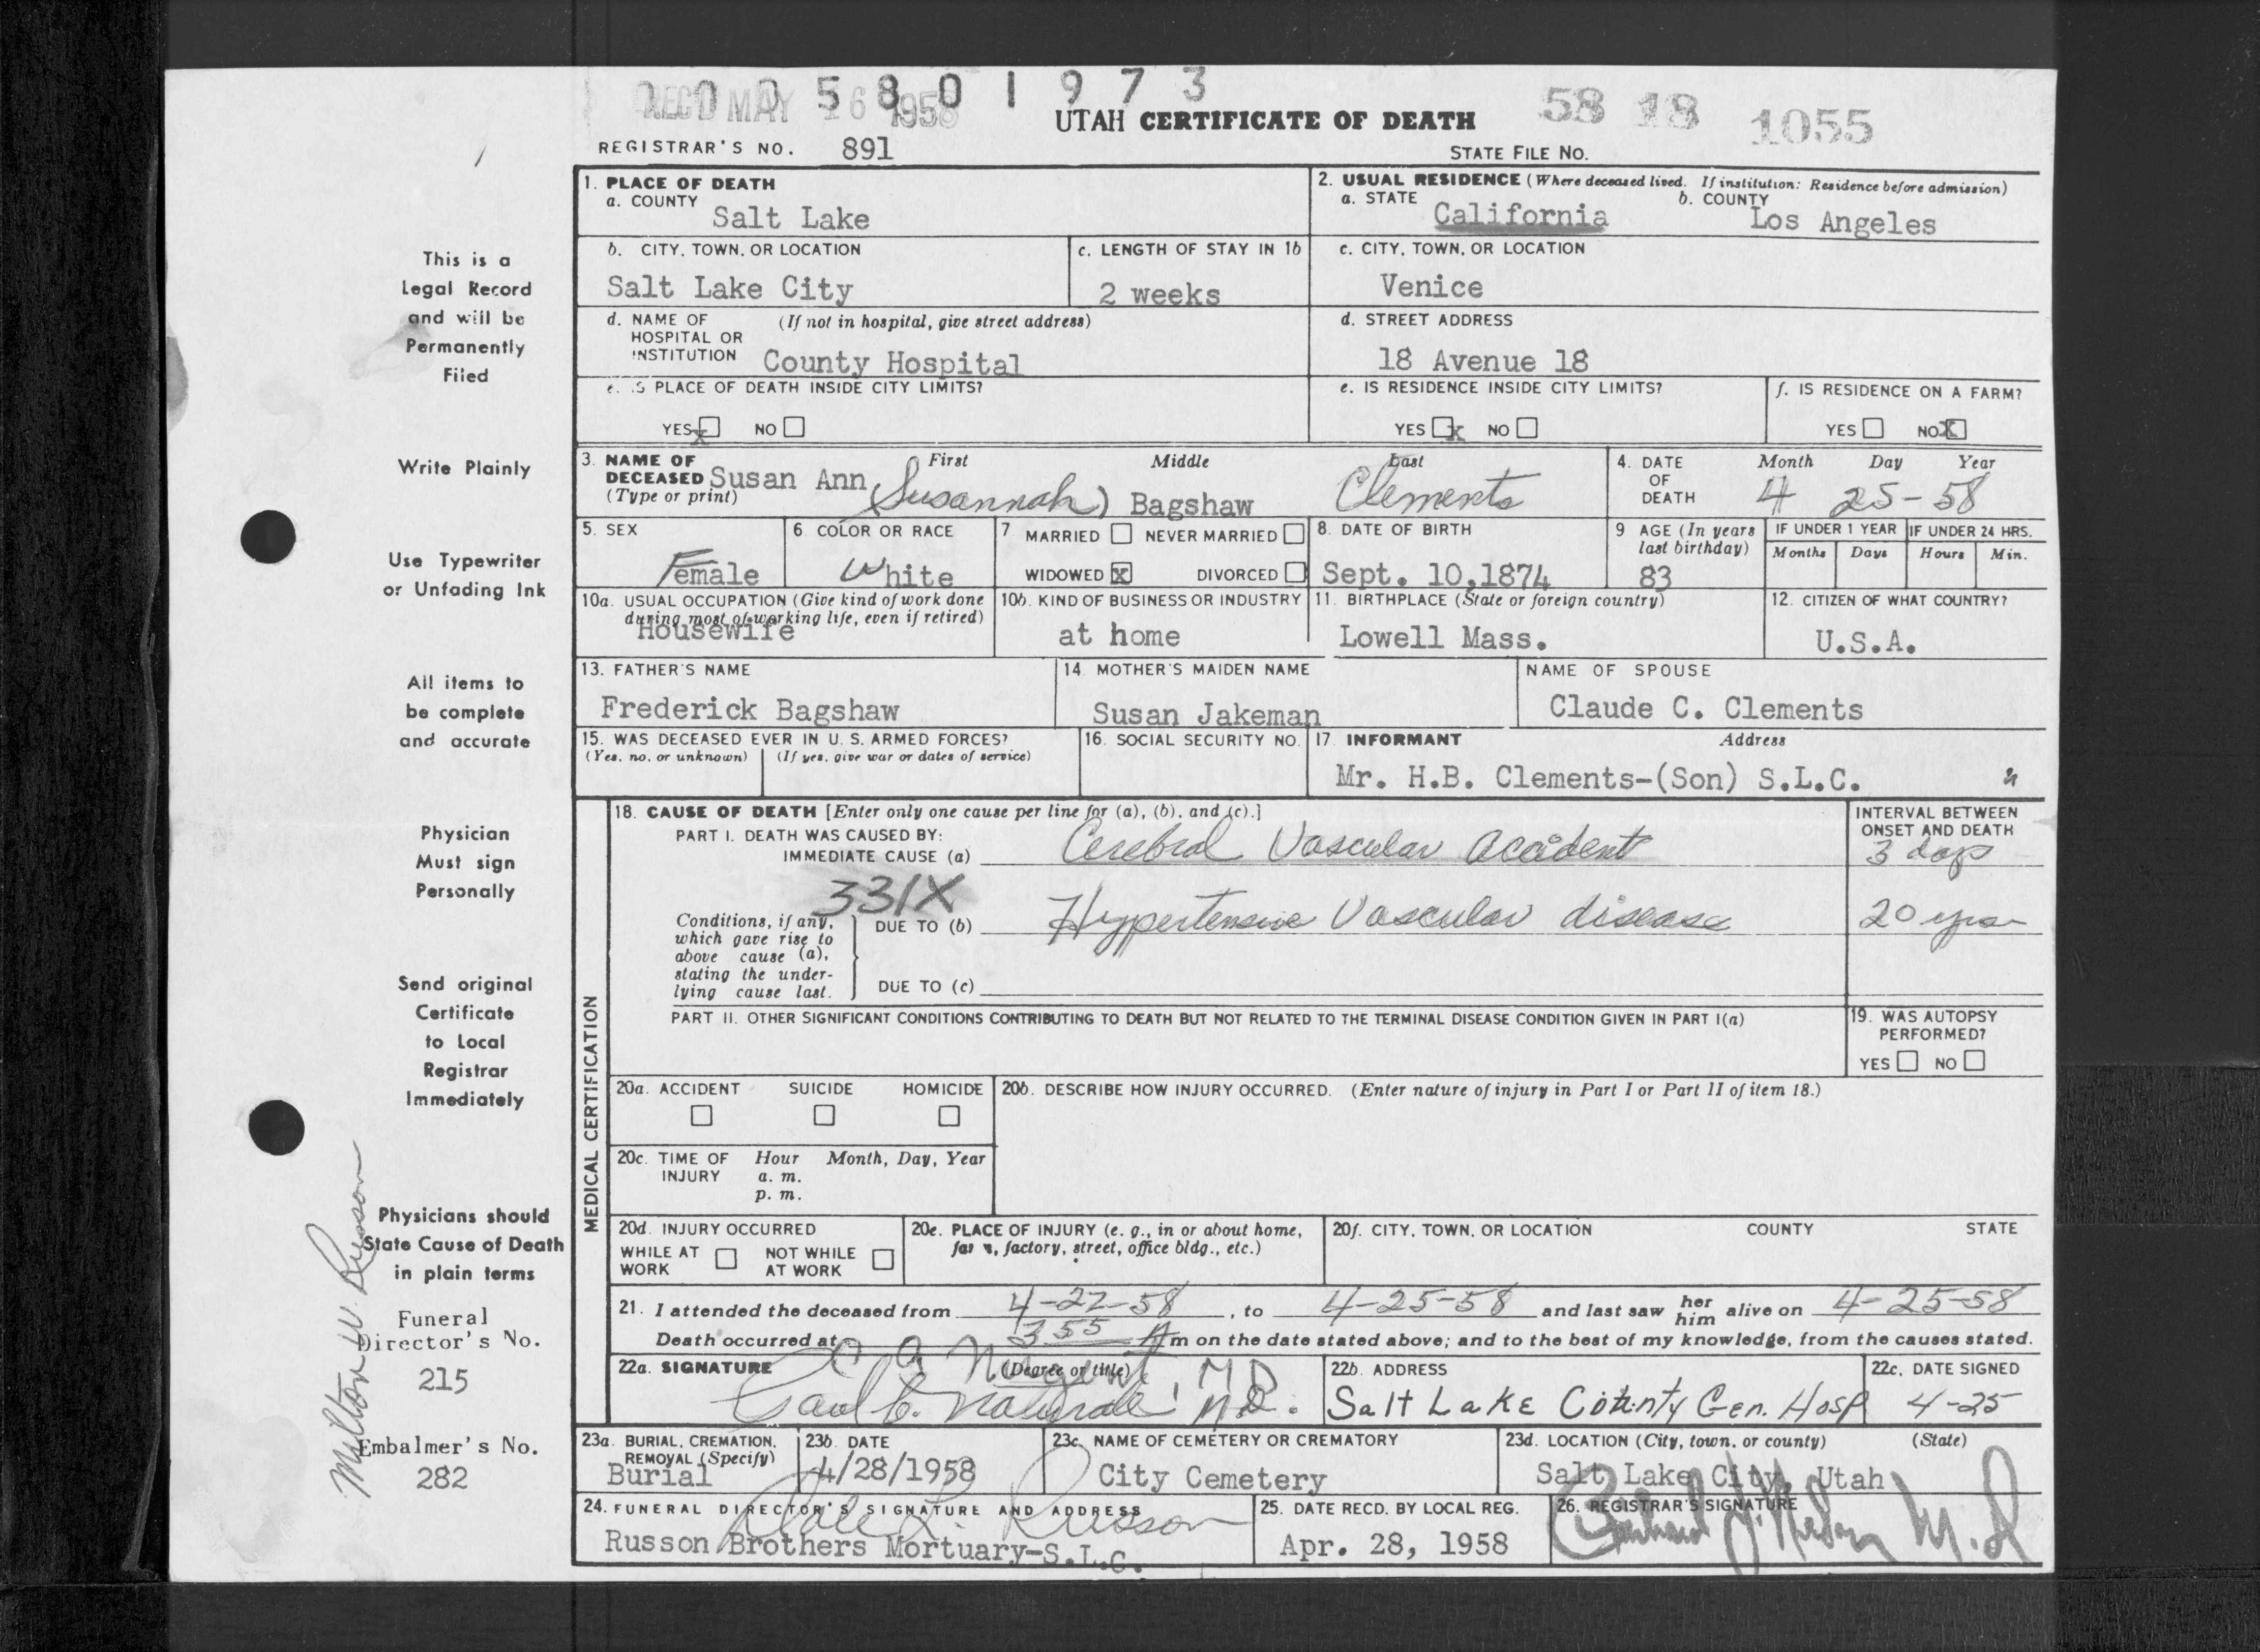 REC'D MAY 16 1958
0 0 5 8 0 1 9 7 3
UTAH CERTIFICATE OF DEATH
58 18 1055
REGISTRAR'S NO. 891
STATE FILE NO.
1. PLACE OF DEATH
a. COUNTY Salt Lake
2. USUAL RESIDENCE (Where deceased lived. If institution: Residence before admission)
a. STATE California b. COUNTY Los Angeles
b. CITY, TOWN, OR LOCATION Salt Lake City
c. LENGTH OF STAY IN 1b 2 weeks
c. CITY, TOWN, OR LOCATION Venice
d. NAME OF HOSPITAL OR INSTITUTION (If not in hospital, give street address) County Hospital
d. STREET ADDRESS 18 Avenue 18
e. IS PLACE OF DEATH INSIDE CITY LIMITS?
YES x NO
e. IS RESIDENCE INSIDE CITY LIMITS?
YES x NO
f. IS RESIDENCE ON A FARM?
YES NO X
3. NAME OF DECEASED (Type or print) First Middle Last
Susan Ann (Susannah) Bagshaw Clements
4. DATE OF DEATH Month Day Year
4 25-58
5. SEX Female
6 COLOR OR RACE White
7 MARRIED NEVER MARRIED
WIDOWED X DIVORCED
8. DATE OF BIRTH Sept. 10,1874
9 AGE (In years last birthday) 83
IF UNDER 1 YEAR Months Days
IF UNDER 24 HRS. Hours Min.
10a. USUAL OCCUPATION (Give kind of work done during most of working life, even if retired)
Housewife
10b. KIND OF BUSINESS OR INDUSTRY at home
11. BIRTHPLACE (State or foreign country) Lowell Mass.
12. CITIZEN OF WHAT COUNTRY? U.S.A.
13. FATHER'S NAME Frederick Bagshaw
14 MOTHER'S MAIDEN NAME Susan Jakeman
NAME OF SPOUSE Claude C. Clements
15. WAS DECEASED EVER IN U. S. ARMED FORCES?
(Yes, no, or unknown) (If yes, give war or dates of service)
16. SOCIAL SECURITY NO.
17. INFORMANT Address
Mr. H.B. Clements-(Son) S.L.C.
MEDICAL CERTIFICATION
18. CAUSE OF DEATH [Enter only one cause per line for (a), (b), and (c).]
INTERVAL BETWEEN ONSET AND DEATH
PART I. DEATH WAS CAUSED BY:
IMMEDIATE CAUSE (a) Cerebral Vascular accident 3 days
331X
Conditions, if any, which gave rise to above cause (a), stating the underlying cause last.
DUE TO (b) Hypertensive Vascular disease 20 yrs
DUE TO (c)
PART II. OTHER SIGNIFICANT CONDITIONS CONTRIBUTING TO DEATH BUT NOT RELATED TO THE TERMINAL DISEASE CONDITION GIVEN IN PART I(a)
19. WAS AUTOPSY PERFORMED?
YES NO
20a. ACCIDENT SUICIDE HOMICIDE
20b. DESCRIBE HOW INJURY OCCURRED. (Enter nature of injury in Part I or Part II of item 18.)
20c. TIME OF INJURY Hour Month, Day, Year
a. m.
p. m.
20d. INJURY OCCURRED
WHILE AT WORK NOT WHILE AT WORK
20e. PLACE OF INJURY (e. g., in or about home, farm, factory, street, office bldg., etc.)
20f. CITY, TOWN, OR LOCATION COUNTY STATE
21. I attended the deceased from 4-22-58, to 4-25-58 and last saw her him alive on 4-25-58
Death occurred at 3 55 A m on the date stated above; and to the best of my knowledge, from the causes stated.
22a. SIGNATURE (Degree or title)
M.D.
M.D.
22b. ADDRESS Salt Lake County Gen. Hosp
22c. DATE SIGNED 4-25
23a. BURIAL, CREMATION, REMOVAL (Specify) Burial
23b. DATE 4/28/1958
23c. NAME OF CEMETERY OR CREMATORY City Cemetery
23d. LOCATION (City, town, or county) (State)
Salt Lake City, Utah
24. FUNERAL DIRECTOR'S SIGNATURE AND ADDRESS
Dale L. Russon
Russon Brothers Mortuary-S.L.C.
25. DATE RECD. BY LOCAL REG. Apr. 28, 1958
26. REGISTRAR'S SIGNATURE
M.D.
This is a
Legal Record
and will be
Permanently
Filed
Write Plainly
Use Typewriter
or Unfading Ink
All items to
be complete
and accurate
Physician
Must sign
Personally
Send original
Certificate
to Local
Registrar
Immediately
Physicians should
State Cause of Death
in plain terms
Funeral
Director's No.
215
Embalmer's No.
282
Milton W. Russon